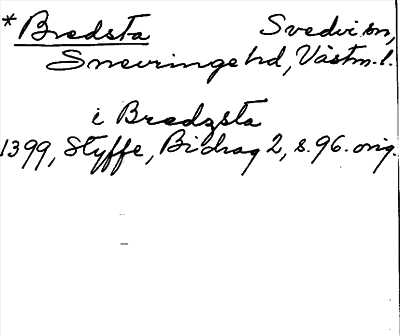 *Bredsta Svedvi sn,
Snevringe hd, Västm. l.
i Bredzsta
1399, Styffe, Bidrag 2, s. 96. orig.